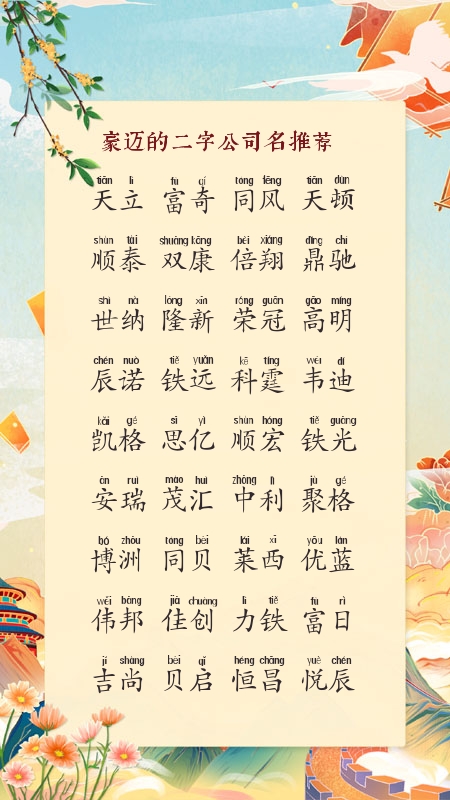 豪迈的二字公司名推荐
tiān lì fù qí tóng fēng tiān dùn
天立 富奇 同风 天顿
shùn tài shuāng kāng bèi xiáng dǐng chí
顺泰 双康 倍翔 鼎驰
shì nà lóng xīn róng guān gāo míng
世纳 隆新 荣冠 高明
chén nuò tiě yuǎn kē tíng wéi dí
辰诺 铁远 科霆 韦迪
kǎi gé sī yì shùn hóng tiě guāng
凯格 思亿 顺宏 铁光
ān ruì mào huì zhōng lì jù gé
安瑞 茂汇 中利 聚格
bó zhōu tóng bèi lái xī yōu lán
博洲 同贝 莱西 优蓝
wěi bāng jiā chuàng lì tiě fù rì
伟邦 佳创 力铁 富日
jí shàng bèi qǐ héng chāng yuè chén
吉尚 贝启 恒昌 悦辰